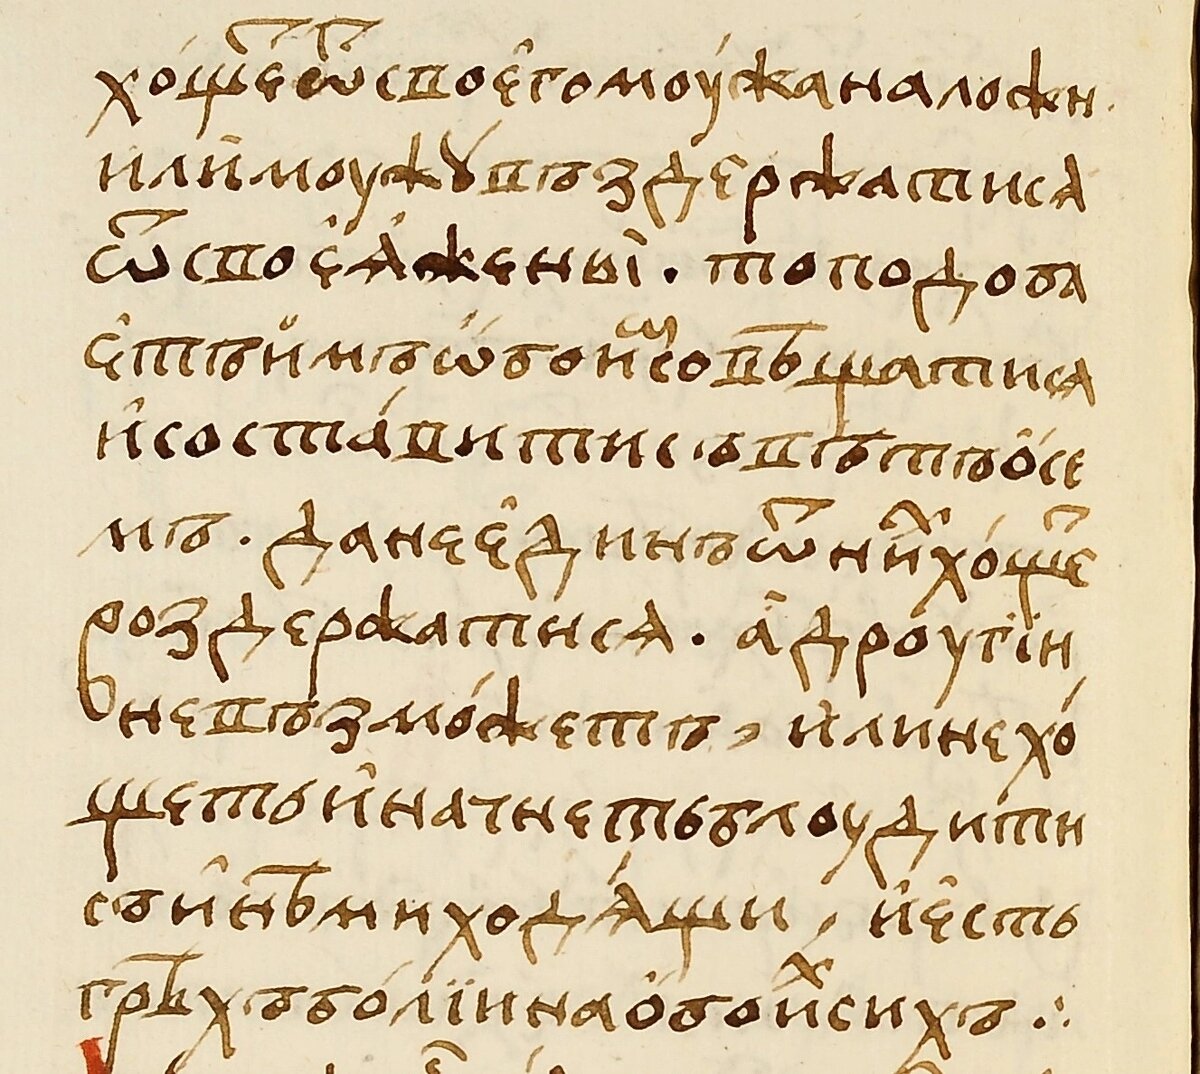 хо́щеⷮ ѿ своє҆гомоу́жаналожн
илѝмоужꙋ въздержатисѧ
ѿ своє҆ѧ̀жены̀ . топодоба
є҆тьи҆мъѡ҆бои҆ⷨ совѣщатисѧ
и҆соста́витисъвѣтъѻ҆се
мъ . данеє҆динъѿни́ⷯхо́щеⷮ
роздержатисѧ . а҆дроугїи
невъзмо́жетъ , илинехо́
щетьи҆начнетьблоудити
съи҆нѣмиходѧ́щи , и҆є҆сть
грѣхъбо́лїинаѻ҆бои҆ⷯсихъ ⁘